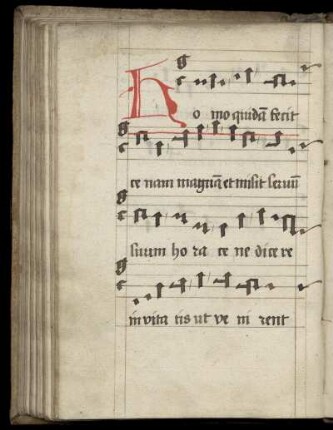 Ho mo quidā fecit
ce nam magnā et misit seruū
suum ho ra ce ne dice re
in vita tis ut ve ni rent